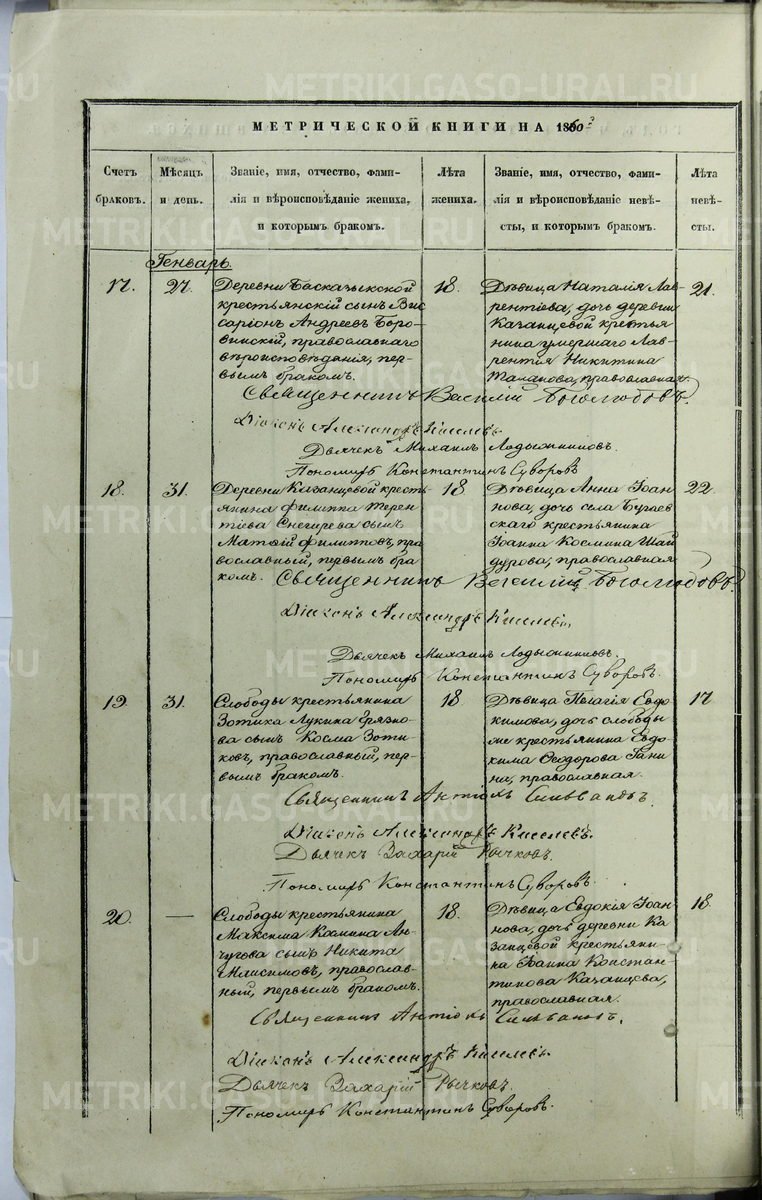 МЕТРИЧЕСКОЙ КНИГИ НА 1860й
Счетъ браковъ.
Мѣсяцъ и день.
Званіе, имя, отчество, фами-
лія и вѣроисповѣданіе жениха,
и которымъ бракомъ.
Лѣта жениха.
Званіе, имя, отчество, фами-
лія и вѣроисповѣданіе невѣ-
сты, и которымъ бракомъ.
Лѣта невѣ-
сты.
Генварь
17. 27.
Деревни
крестьянскій сынъ Вис
саріонъ Андреевъ Боро-
винскій, православнаго
вѣроисповѣданія, пер-
вымъ бракомъ.
18.
Дѣвица Наталія Лав-
рентіева, дочь деревни
Казанцевой крестья
нина умершаго Лав-
рентія Никитина
православная.
21.
Священникъ Василій Боголюбовъ.
Діаконъ Александръ Киселевъ.
Дьячекъ Михаилъ Лодыжниковъ.
Пономарь Константинъ Суворовъ
18. 31.
Деревни Казанцевой кресть-
янина Филиппа Терен-
тіева Снегирева сынъ
Матѳій Филипповъ, пра
вославный, первымъ бра
комъ.
18
Дѣвица Анна Іоан-
нова, дочь села
скаго крестьянина
Іоанна Космина Шай
дурова, православная
22.
Священникъ Василій Боголюбовъ.
Діаконъ Александръ Киселевъ.
Дьячекъ Михаилъ Лодыжниковъ.
Пономарь Константинъ Суворовъ.
19. 31.
Слободы крестьянина
Зотика Лукина Грязно-
ва сынъ Косма Зоти-
ковъ, православный, пер-
вымъ бракомъ.
18.
Дѣвица Пелагія Евдо-
кимова, дочь слободы
же крестьянина Евдо-
кима Ѳеодорова Гани
на, православная.
17.
Священникъ Антіохъ Сильвановъ.
Діаконъ Александръ Киселевъ.
Дьячекъ Захарій Рычковъ.
Пономарь Константинъ Суворовъ.
20. —
Слободы крестьянина
Максима Космина Ан-
чугова сынъ Никита
православ-
ный, первымъ бракомъ.
18.
Дѣвица Евдокія Іоан-
нова, дочь деревни Ка
занцевой крестьяни-
на Іоанна Констан-
тинова Казанцева,
православная.
18.
Священникъ Антіохъ Сильвановъ.
Діаконъ Александръ Киселевъ.
Дьячекъ Захарій Рычковъ.
Пономарь Константинъ Суворовъ.
METRIKI.GASO-URAL.RU